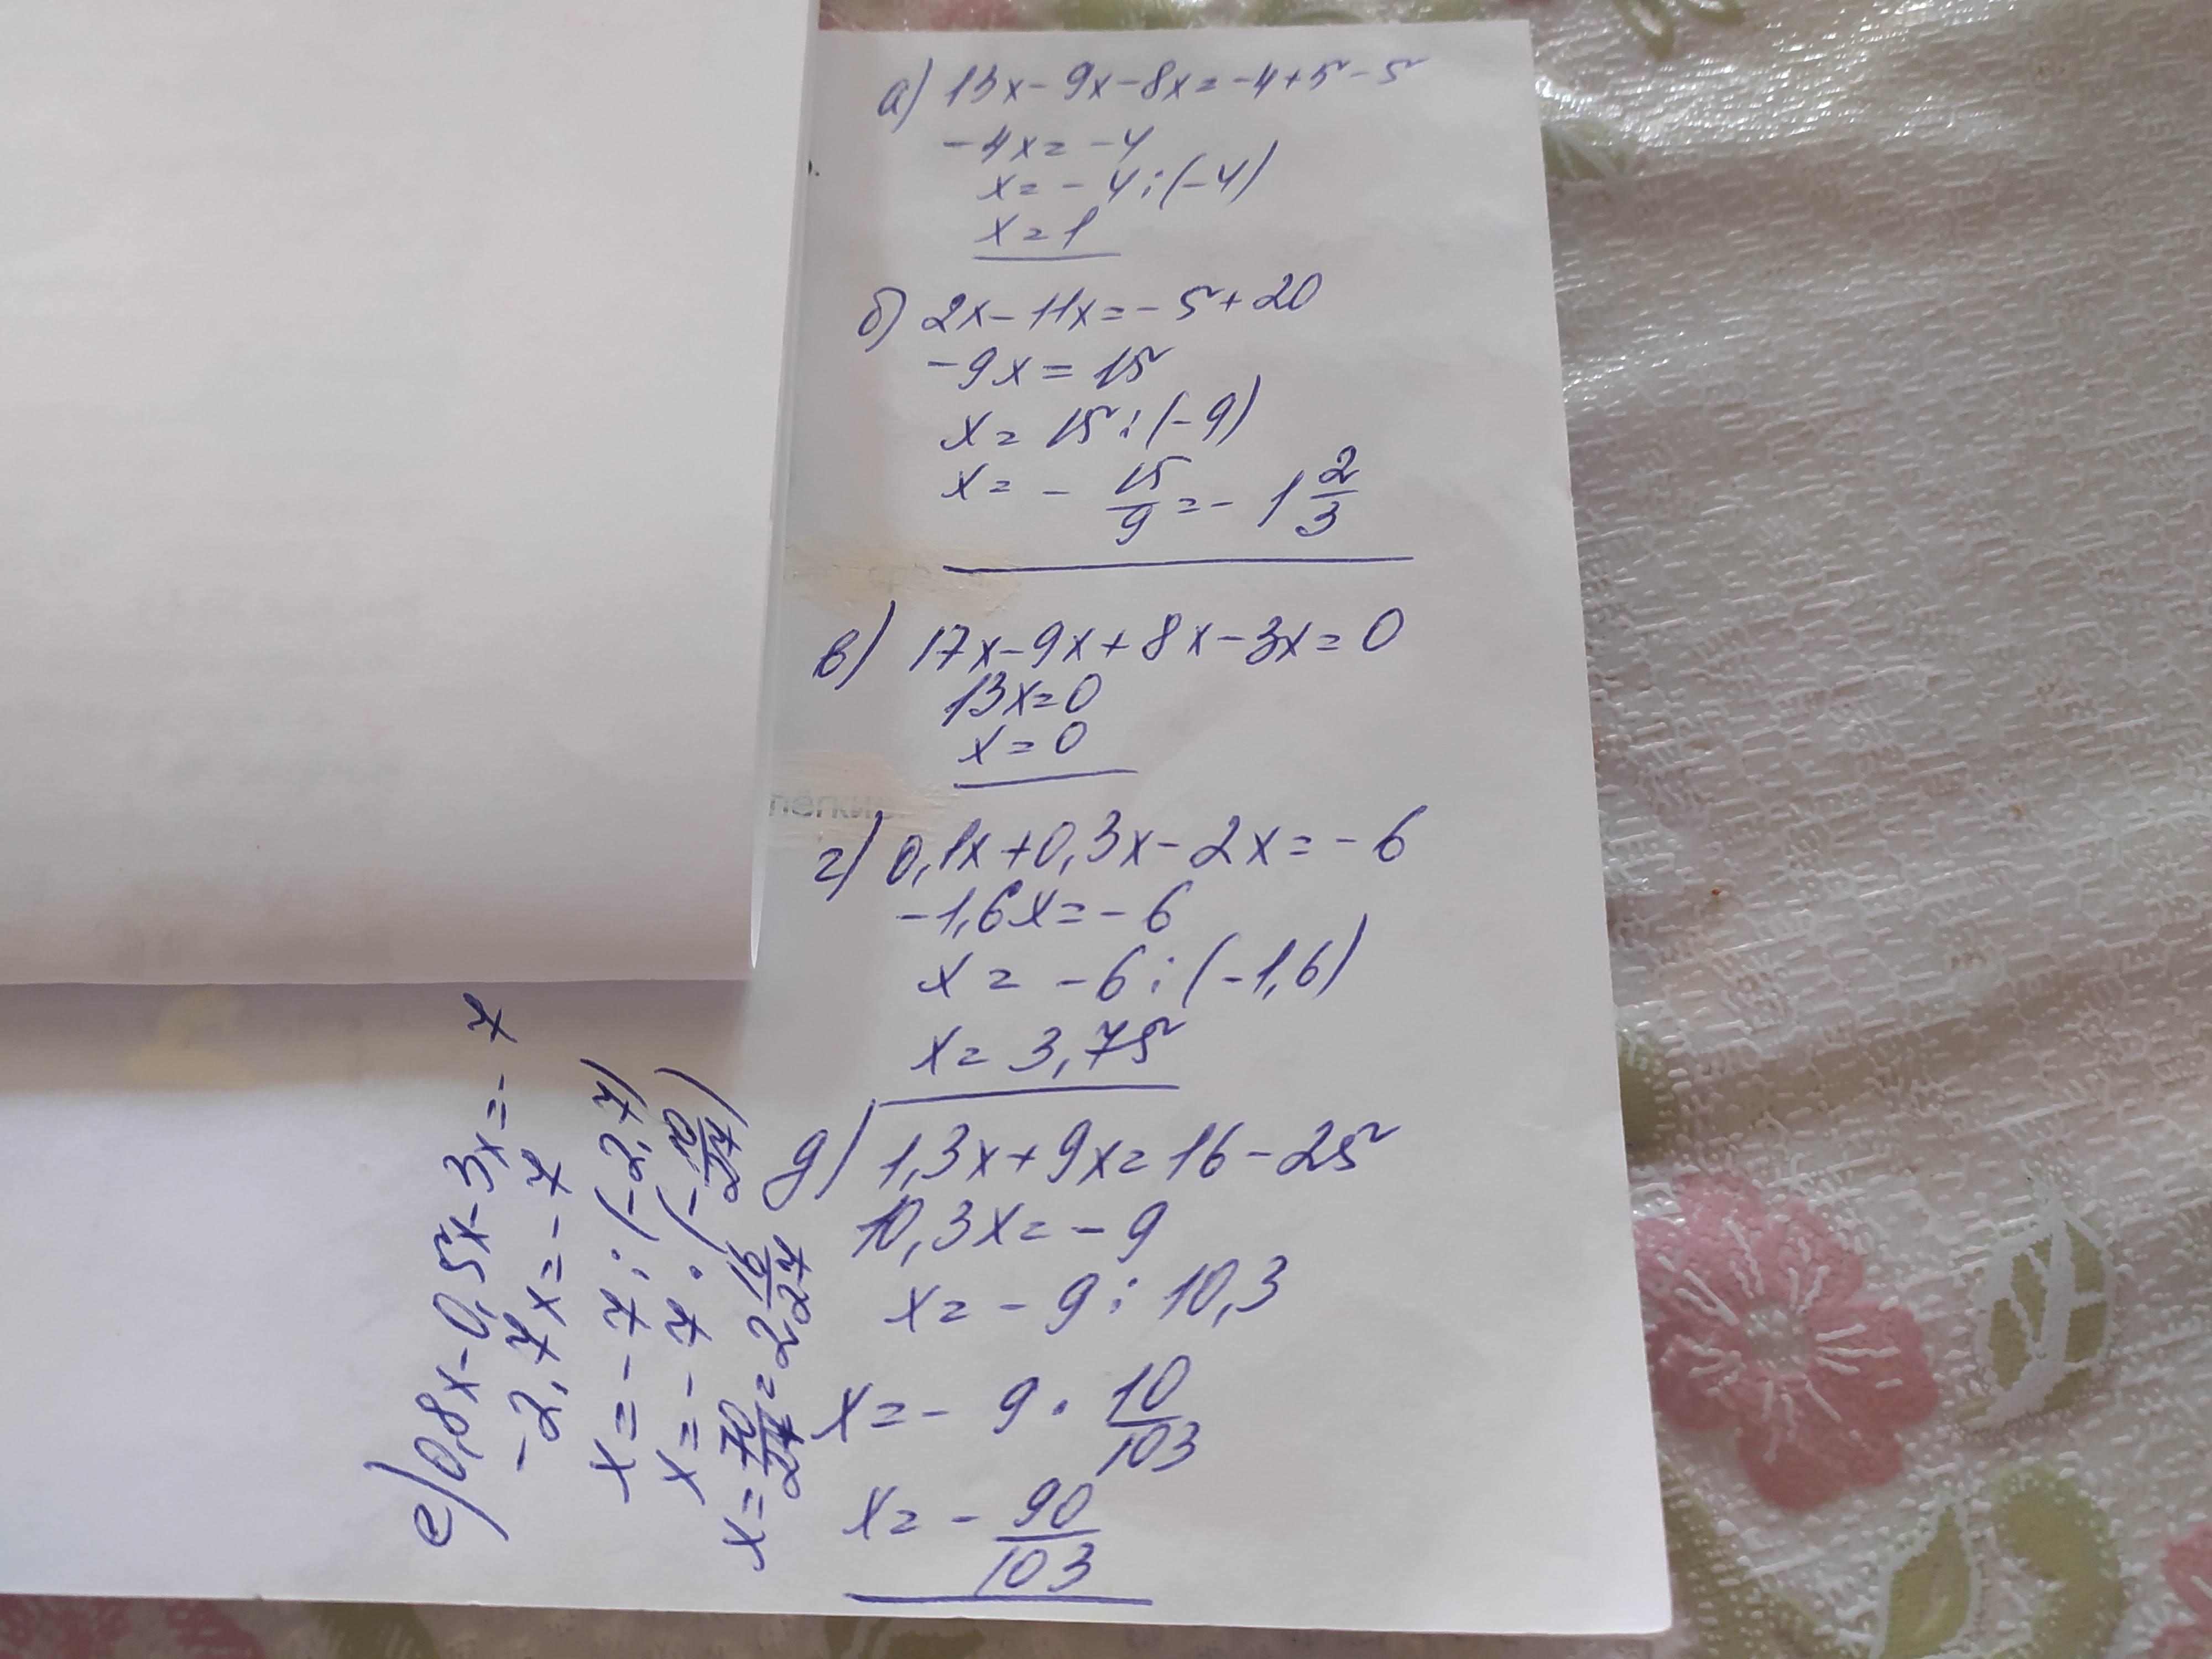 а) 13x - 9x - 8x = -4 + 5 - 5
-4x = -4
x = -4 : (-4)
x = 1
б) 2x - 11x = -5 + 20
-9x = 15
x = 15 : (-9)
x = - 15/9 = - 1 2/3
в) 17x - 9x + 8x - 3x = 0
13x = 0
x = 0
г) 0,1x + 0,3x - 2x = -6
-1,6x = -6
x = -6 : (-1,6)
x = 3,75
д) 1,3x + 9x = 16 - 25
10,3x = -9
x = -9 : 10,3
x = - 9 · 10/103
x = - 90/103
е) 0,8x - 0,5x - 3x = -7
-2,7x = -7
x = -7 : (-2,7)
x = -7 · (- 10/27)
x = 70/27 = 2 16/27